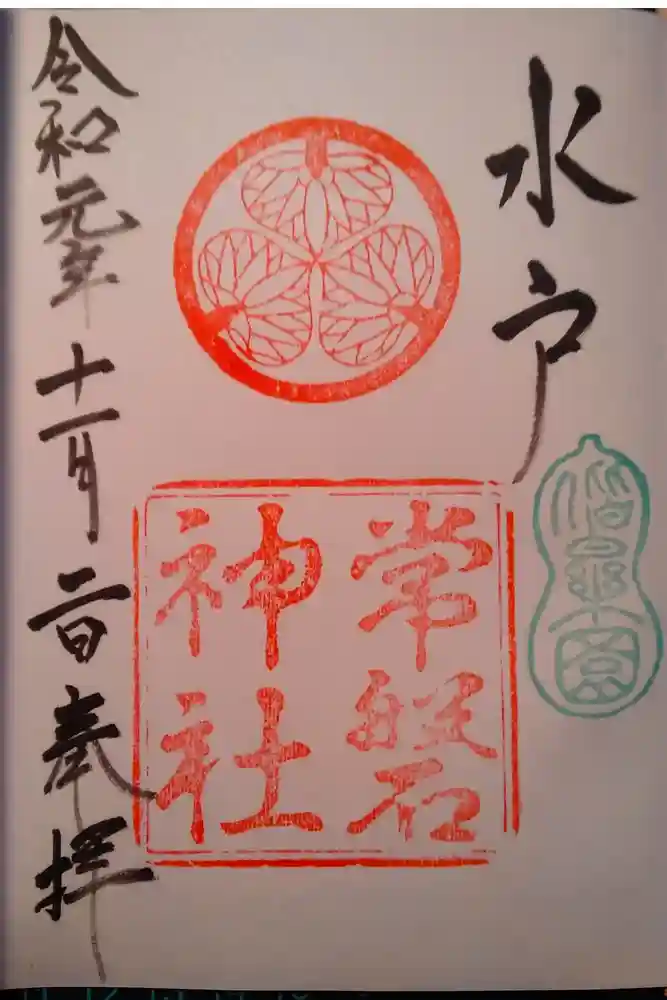 水戸
偕楽園
常磐
神社
令和元年十一月二日奉拝